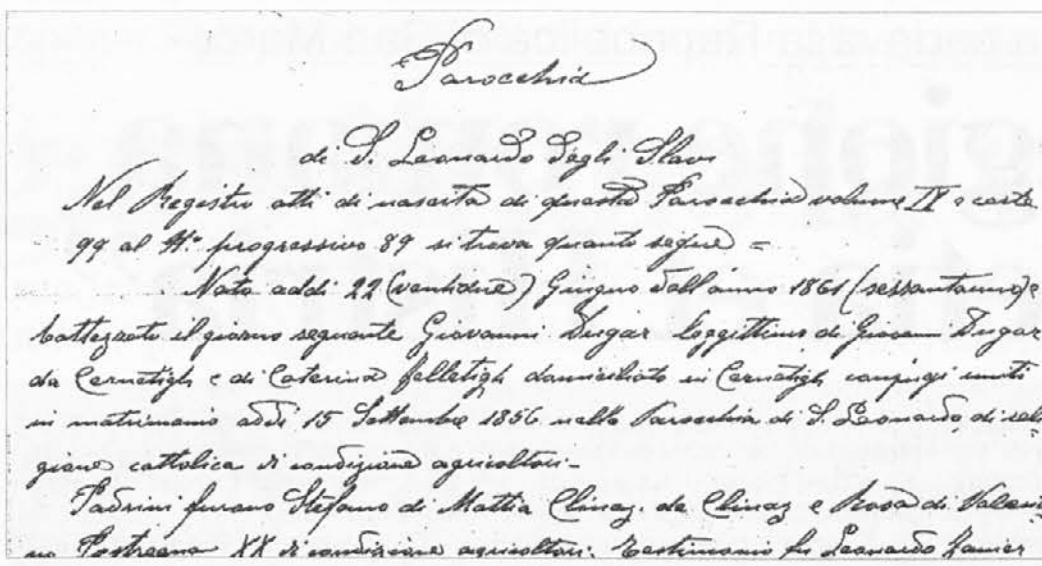 Parocchia
di S. Leonardo Degli Slavi
Nel Registro atti di nascita di questa Parocchia volume IV a carte
99 al N° progressivo 89 si trova quanto segue =
Nato addi 22 (ventidue) Giugno dall'anno 1861 (sessantauno) e
battezzato il giorno seguente Giovanni Dugar leggittimo di Giovanni Dugar
da Cernetigh e di Caterina domiciliato in Cernetigh conjugi uniti
in matrimonio addi 15 Settembre 1856 nella Parocchia di S. Leonardo, di reli
gione cattolica di condizione agricoltori -
Padrini furano Stefano di Mattia Clinaz da Clinaz e Rosa di Valenti
no Postregna XX di condizione agricoltori. Testimonio fu Leonardo